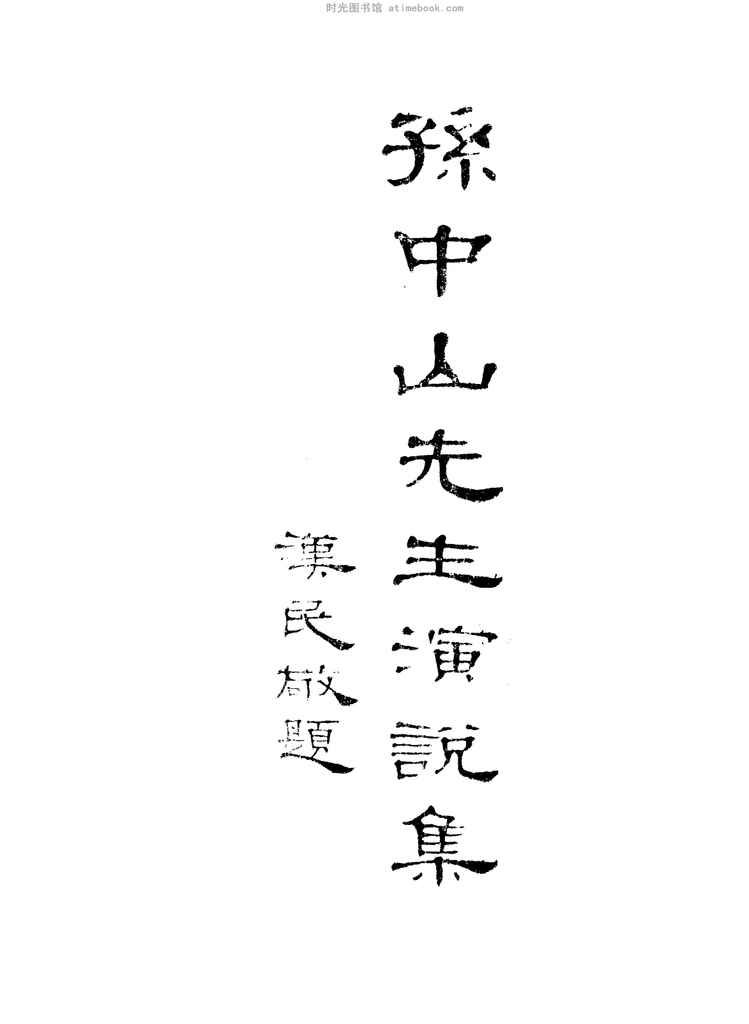 时光图书馆 atimebook.com
孫中山先生演說集
漢民敬題